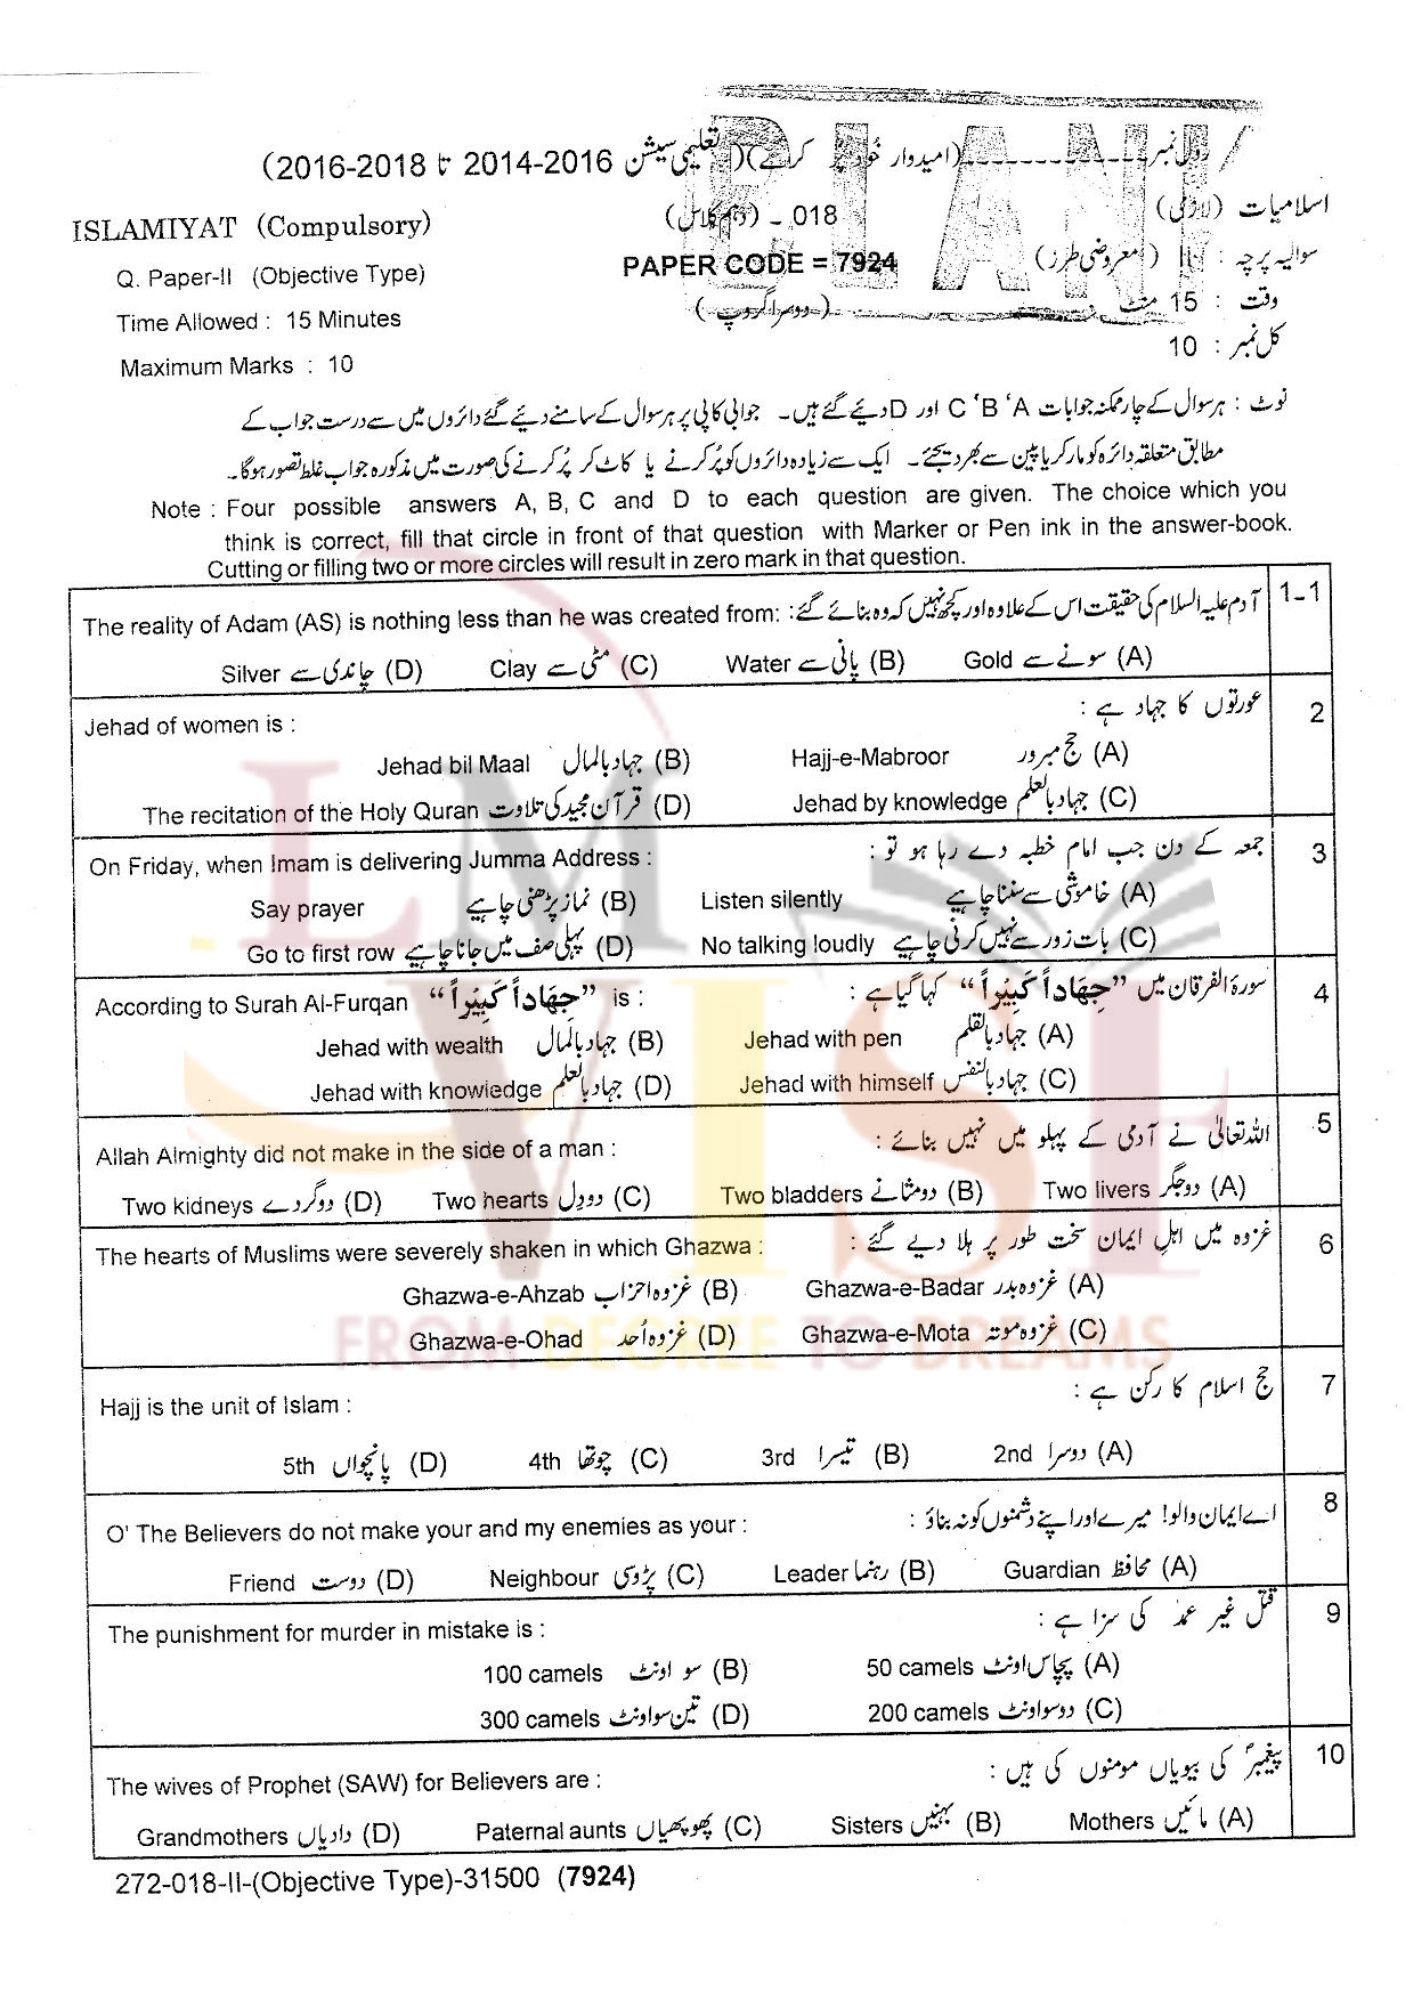 رول نمبر ---------------- (امیدوار خود پُر کرے) (تعلیمی سیشن 2014-2016 تا 2016-2018)
ISLAMIYAT (Compulsory) 018 - (دہم کلاس) اسلامیات (لازمی)
Q. Paper-II (Objective Type) PAPER CODE = 7924 سوالیہ پرچہ : II (معروضی طرز)
Time Allowed : 15 Minutes (دوسرا گروپ) وقت : 15 منٹ
Maximum Marks : 10 کل نمبر : 10
نوٹ : ہر سوال کے چار ممکنہ جوابات A، B، C اور D دیئے گئے ہیں۔ جوابی کاپی پر ہر سوال کے سامنے دیئے گئے دائروں میں سے درست جواب کے
مطابق متعلقہ دائرہ کو مارکر یا پین سے بھر دیجئے۔ ایک سے زیادہ دائروں کو پُر کرنے یا کاٹ کر پُر کرنے کی صورت میں مذکورہ جواب غلط تصور ہوگا۔
Note : Four possible answers A, B, C and D to each question are given. The choice which you
think is correct, fill that circle in front of that question with Marker or Pen ink in the answer-book.
Cutting or filling two or more circles will result in zero mark in that question.
1-1 آدم علیہ السلام کی حقیقت اس کے علاوہ اور کچھ نہیں کہ وہ بنائے گئے: The reality of Adam (AS) is nothing less than he was created from:
(A) سونے سے Gold (B) پانی سے Water (C) مٹی سے Clay (D) چاندی سے Silver
2 عورتوں کا جہاد ہے : Jehad of women is :
(A) حج مبرور Hajj-e-Mabroor (B) جہاد بالمال Jehad bil Maal
(C) جہاد بالعلم Jehad by knowledge (D) قرآن مجید کی تلاوت The recitation of the Holy Quran
3 جمعہ کے دن جب امام خطبہ دے رہا ہو تو : On Friday, when Imam is delivering Jumma Address :
(A) خاموشی سے سننا چاہیے Listen silently (B) نماز پڑھنی چاہیے Say prayer
(C) بات زور سے نہیں کرنی چاہیے No talking loudly (D) پہلی صف میں جانا چاہیے Go to first row
4 سورۃ الفرقان میں "جِهَاداً كَبِيْراً" کہا گیا ہے : According to Surah Al-Furqan "جِهَاداً كَبِيْراً" is :
(A) جہاد بالقلم Jehad with pen (B) جہاد بالمال Jehad with wealth
(C) جہاد بالنفس Jehad with himself (D) جہاد بالعلم Jehad with knowledge
5 اللہ تعالیٰ نے آدمی کے پہلو میں نہیں بنائے : Allah Almighty did not make in the side of a man :
(A) دو جگر Two livers (B) دو مثانے Two bladders (C) دو دِل Two hearts (D) دو گردے Two kidneys
6 غزوہ میں اہلِ ایمان سخت طور پر ہلا دیے گئے : The hearts of Muslims were severely shaken in which Ghazwa :
(A) غزوہ بدر Ghazwa-e-Badar (B) غزوہ احزاب Ghazwa-e-Ahzab
(C) غزوہ موتہ Ghazwa-e-Mota (D) غزوہ اُحد Ghazwa-e-Ohad
7 حج اسلام کا رکن ہے : Hajj is the unit of Islam :
(A) دوسرا 2nd (B) تیسرا 3rd (C) چوتھا 4th (D) پانچواں 5th
8 اے ایمان والو! میرے اور اپنے دشمنوں کو نہ بناؤ : O' The Believers do not make your and my enemies as your :
(A) محافظ Guardian (B) رہنما Leader (C) پڑوسی Neighbour (D) دوست Friend
9 قتل غیر عمد کی سزا ہے : The punishment for murder in mistake is :
(A) پچاس اونٹ 50 camels (B) سو اونٹ 100 camels
(C) دو سو اونٹ 200 camels (D) تین سو اونٹ 300 camels
10 پیغمبرؐ کی بیویاں مومنوں کی ہیں : The wives of Prophet (SAW) for Believers are :
(A) مائیں Mothers (B) بہنیں Sisters (C) پھوپھیاں Paternal aunts (D) دادیاں Grandmothers
272-018-II-(Objective Type)-31500 (7924)
LM
VISE
FROM DEGREE TO DREAMS